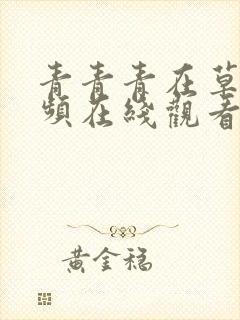 青青青在草
頻在綫觀看
黃金稳